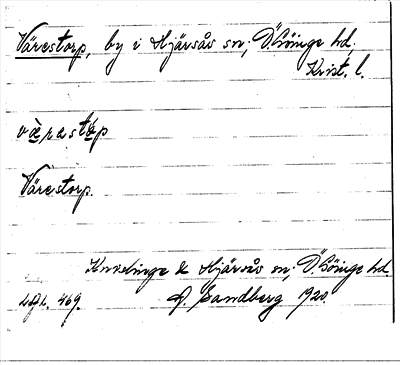 Värestorp, by i Hjärsås sn; Ö. Göinge hd,
Krist. l.
værastǻp
Värestorp.
Knislinge & Hjärsås sn; Ö. Göinge hd.
Lgfk. 469. A. Sandberg 1920.